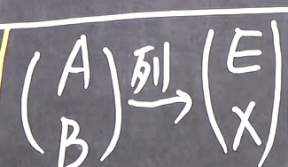 (A B) 列→ (E X)